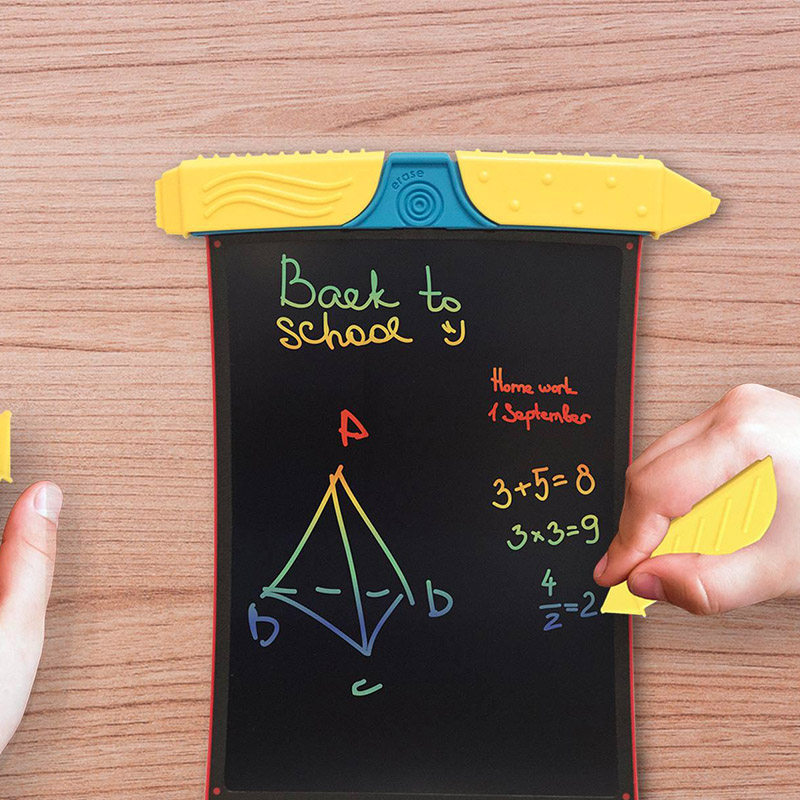 erase
Back to
school
Home work
1 September
A
3+5=8
3x3=9
4
2
=2
B
D
C